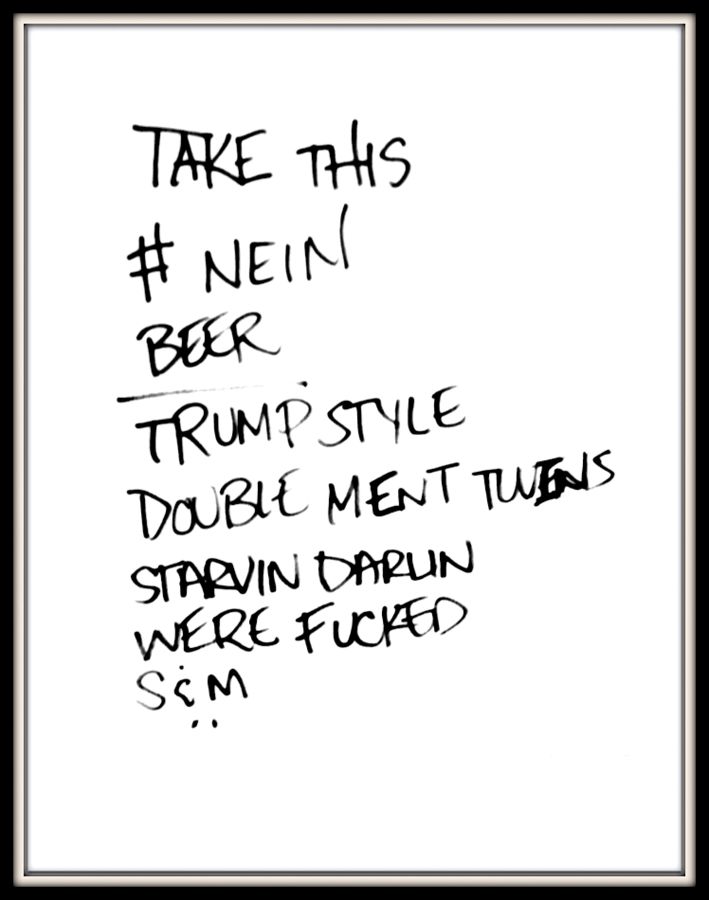 TAKE THIS
# NEIN
BEER
TRUMP STYLE
DOUBLE MENT TWINS
STARVIN DARLIN
WERE FUCKED
S & M